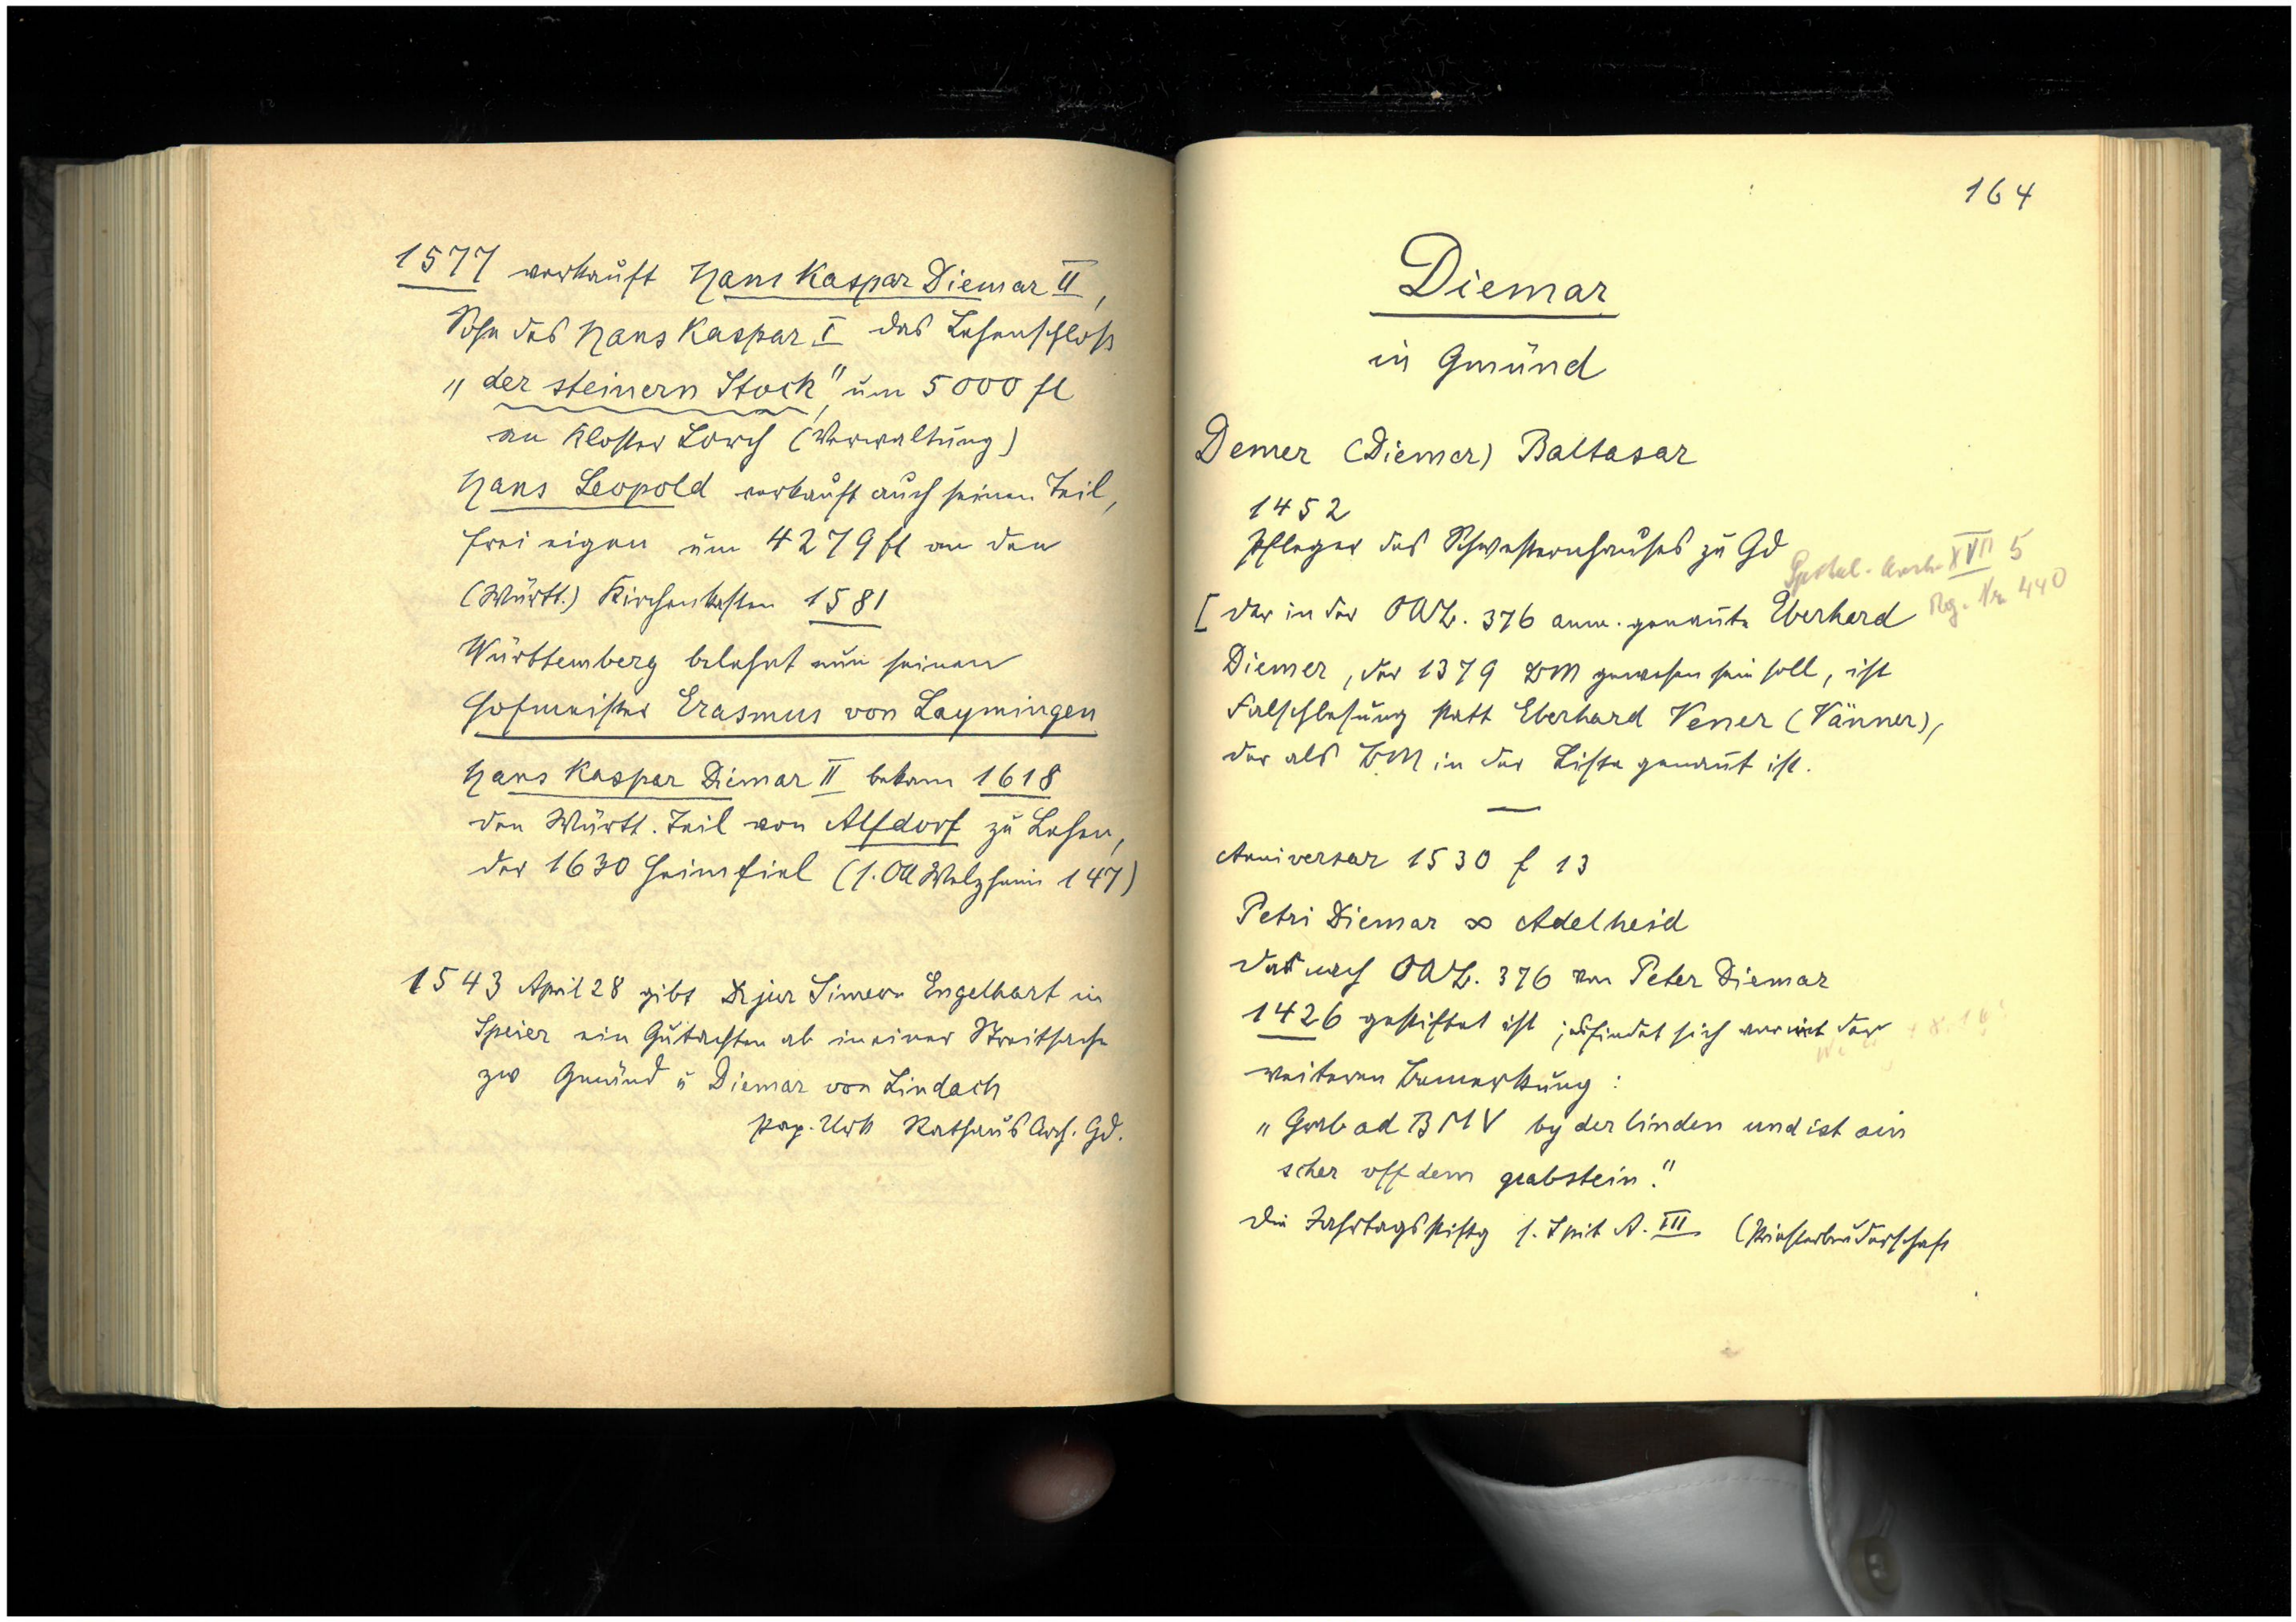 1577 verkauft Hans Kaspar Diemar II,
Sohn des Hans Kaspar I das Lehenschloss
„der steinern Stock" um 5000 fl
an Kloster Lorch (Verwaltung)
Hans Leopold verkauft auch seinen Teil,
frei eigen um 4279 fl an den
(Württ.) Kirchenkasten 1581
Württemberg belehnt nun seinen
Hofmeister Erasmus von Laymingen
Hans Kaspar Diemar II bekam 1618
den Württ. Teil von Alfdorf zu Lehen,
der 1630 heimfiel (s. OA Welzheim 147)
1543 April 28 gibt Dr jur Simeon Engelhart in
Speier ein Gutachten ab in einer Streitsache
zw Gmünd u Diemar von Lindach
Pap. Urk Rathaus Arch. Gd.
164
Diemar
in Gmünd
Demer (Diemer) Baltasar
1452
Pfleger des Schwesternhauses zu Gd
Spital-Arch. XVII 5
Rg. Nr. 440
[ Der in der OAB. 376 anm. genannte Eberhard
Diemer, der 1379 BM gewesen sein soll, ist
Falschlesung statt Eberhard Vener (Vänner),
der als BM in der Liste genannt ist.
—
Anniversar 1530 f 13
Petri Diemar ∞ Adelheid
das nach OAB. 376 von Peter Diemar
1426 gestiftet ist; es findet sich mit der
weiteren Bemerkung:
„Grab ad BMV by der linden und ist ain
scher uff dem grabstein."
Die Jahrtagsstiftg s. Spit A. III (Priesterbruderschaft